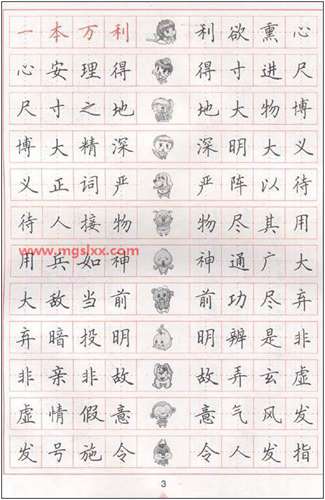 一本万利 利欲熏心
心安理得 得寸进尺
尺寸之地 地大物博
博大精深 深明大义
义正词严 严阵以待
待人接物 物尽其用
www.mgslxx.com
用兵如神 神通广大
大敌当前 前功尽弃
弃暗投明 明辨是非
非亲非故 故弄玄虚
虚情假意 意气风发
发号施令 令人发指
3